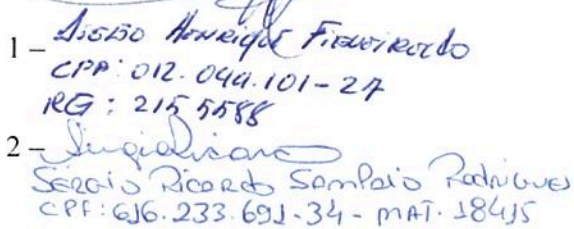 1 - Henrique Figueiredo
CPF: 012.044.101-27
RG: 215 5588
2 -
Sergio Ricardo Sampaio Rodrigues
CPF: 616.233.691-34 - MAT. 18415